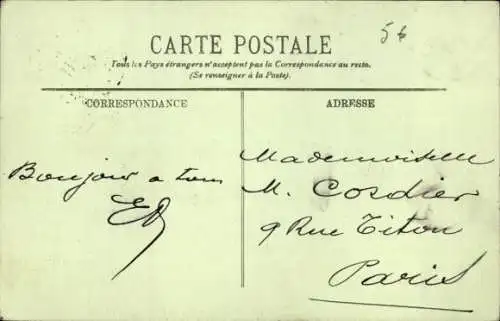 5 €
CARTE POSTALE
Tous les Pays étrangers n'acceptent pas la Correspondance au recto.
(Se renseigner à la Poste).
CORRESPONDANCE
ADRESSE
Bonjour a tous
ED
Mademoiselle
M. Cordier
9 Rue Titon
Paris